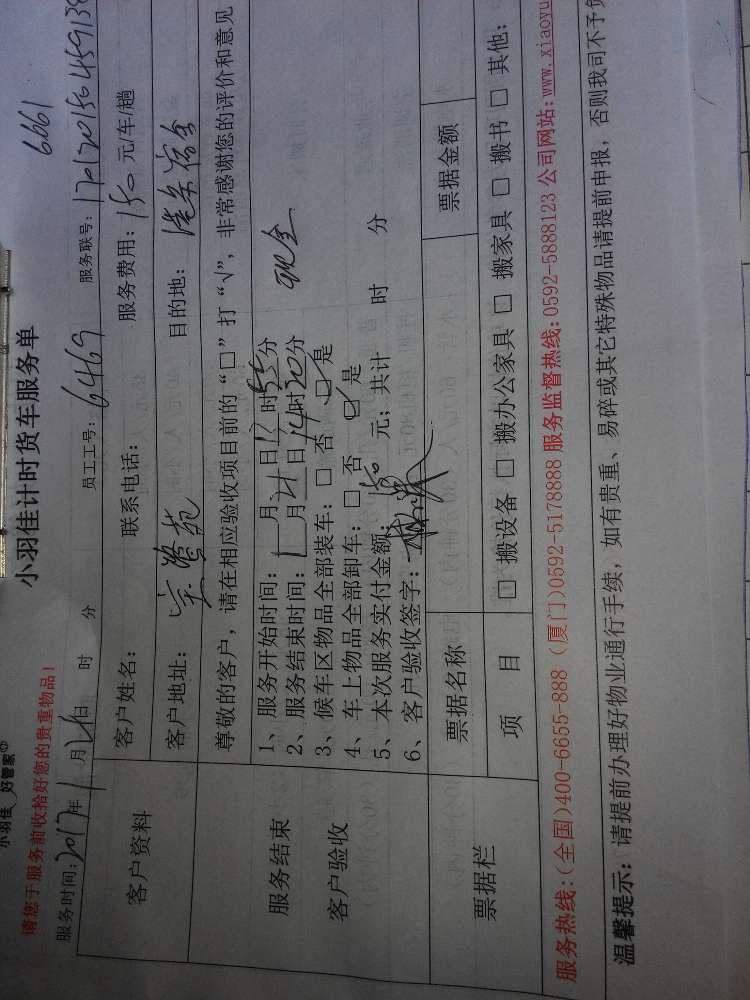 小羽佳 好管家
请您于服务前收拾好您的贵重物品！
小羽佳计时货车服务单
6661
服务时间：2017年1月21日 时 分 员工工号：6469 服务联号：
客户资料
客户姓名： 联系电话： 服务费用：150元/车/趟
客户地址： 目的地：
尊敬的客户，请在相应验收项目前的“□”打“√”，非常感谢您的评价和意见
服务结束
客户验收
1、服务开始时间： 月 日 时55分 现金
2、服务结束时间：1月21日14时20分
3、候车区物品全部装车：□ 否 ☑ 是
4、车上物品全部卸车：□ 否 ☑ 是
5、本次服务实付金额：150元；共计 时 分
6、客户验收签字：
票据栏
票据名称 票据金额
项 目 □ 搬设备 □ 搬办公家具 □ 搬家具 □ 搬书 □ 其他：
服务热线：(全国)400-6655-888 (厦门)0592-5178888 服务监督热线：0592-5888123 公司网站：www.xiaoyu
温馨提示：请提前办理好物业通行手续，如有贵重、易碎或其它特殊物品请提前申报，否则我司不予负